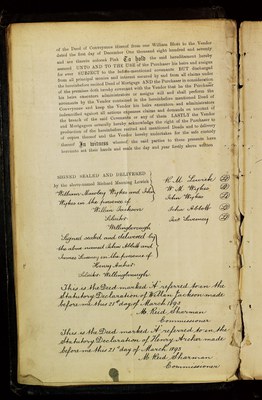 of the Deed of Conveyance thereof from one William Blott to the Vendor
dated the first day of December One thousand eight hundred and seventy
and are therein coloured Pink To hold the said hereditaments hereby
assured UNTO AND TO THE USE of the Purchaser his heirs and assigns
for ever SUBJECT to the before-mentioned covenants BUT discharged
from all principal monies and interest secured by and from all claims under
the hereinbefore recited Deed of Mortgage AND the Purchaser in consideration
of the premises doth hereby covenant with the Vendor that he the Purchaser
his heirs executors administrators or assigns will and shall perform the
covenants by the Vendor contained in the hereinbefore mentioned Deed of
Conveyance and keep the Vendor his heirs executors and administrators
indemnified against all actions expenses claims and demands on account of
the breach of the said Covenants or any of them LASTLY the Vendor
and Mortgagees severally hereby acknowledge the right of the Purchaser to
production of the hereinbefore recited and mentioned Deeds and to delivery
of copies thereof and the Vendor hereby undertakes for the safe custody
thereof In witness whereof the said parties to these presents have
hereunto set their hands and seals the day and year firstly above written
SIGNED SEALED AND DELIVERED
by the above-named Richard Manning Lewick
William Manning Wykes and John
Wykes in the presence of
William Jackson
Solicitor
Wellingborough
Signed sealed and delivered by
the above named John Abbott and
James Sumney in the presence of
Henry Archer
Solicitor Wellingborough
R. M. Lewick
W. M. Wykes
John Wykes
John Abbott
Jas Sumney
This is the Deed marked A referred to in the
Statutory Declaration of William Jackson made
before me this 21st day of March 1895
M. Reid Sharman
Commissioner
This is the Deed marked A referred to in the
Statutory Declaration of Henry Archer made
before me this 21st day of March 1895
M. Reid Sharman
Commissioner